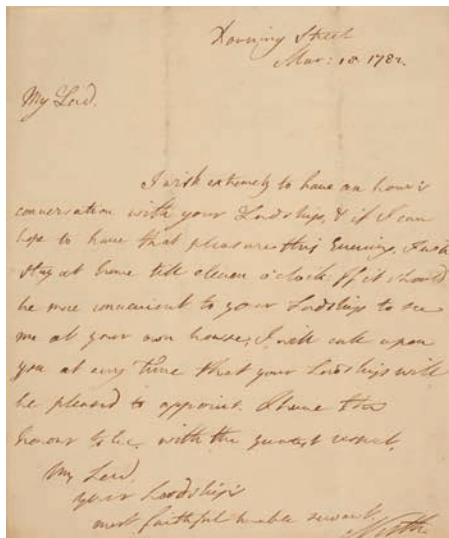 Downing Street
Mar: 18. 1782.
My Lord.
I wish extremely to have an hour's
conversation with your Lordship, & if I can
hope to have that pleasure this Evening, I will
stay at home till eleven o'clock: If it should
be more convenient to your Lordship to see
me at your own house, I will call upon
you at any time that your Lordship will
be pleased to appoint. I have the
honour to be, with the greatest respect,
My Lord,
your Lordship's
most faithful humble servant,
North